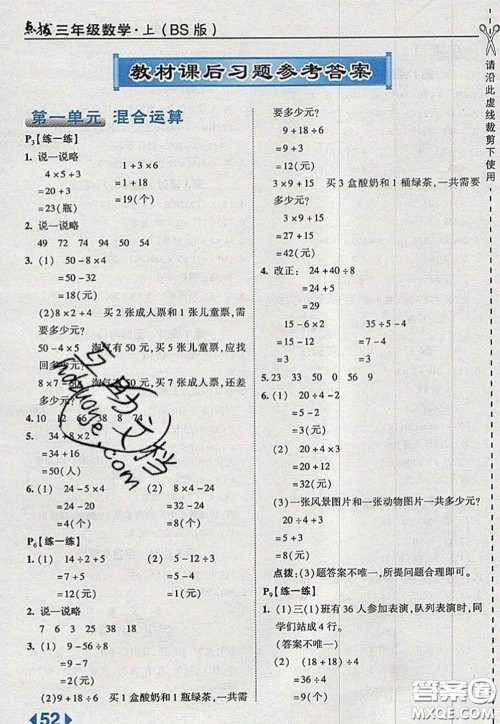 点拨 三年级数学·上（BS版）
教材课后习题参考答案
第一单元 混合运算
P3【练一练】
1. 说一说略
4×5+3 1+3×6
=20+3 =1+18
=23(瓶) =19(个)
2. 说一说略
49 72 74 94 50 54
3. (1) 50-8×4
=50-32
=18(元)
(2)8×2+4 买2张成人票和1张儿童票,需
要多少元?
50-4×5 淘气有50元,买5张儿童票,应找
回多少元?
8×7 淘气有50元,买7张成人票,还差
多少元?
4. 10 12 66 38 8 74
5. 34+8×2
=34+16
=50(人)
6. (1) 28-5×4 (2) 8×4-24
=28-24 =32-24
=4(个) =8(个)
P6【练一练】
1. (1) 14÷2+5 (2) 5-12÷3
=7+5 =5-4
=12(元) =1(元)
2. 说一说略
7 6 3 25 38 18
3. (1) 9-56÷8
=9-7
=2(元)
(2)9+18÷6 买1盒酸奶和1瓶绿茶,一共需
要多少元?
9+18÷6
=9+3
=12(元)
3×9+15 买3盒酸奶和1桶绿茶,一共需要
多少元?
3×9+15
=27+15
=42(元)
4. 改正: 24+40÷8
=24+5
=29
15-6÷3 35-5×4
=15-2 =35-20
=13 =15
5. 23 33 50 0 56 9
6. (1) 20÷4-2
=5-2
=3(元)
(2) 20÷4+12÷4
=5+3
=8(元)
(3)一张风景图片和一张动物图片一共多少元?
20÷4+3
=5+3
=8(元)
点拨:(3)题答案不唯一,所提问题合理即可。
P9【练一练】
1. (1)三(1)班有36人参加表演,队列表演时,同
学们站成4行。
(答案不唯一)
(2) 36÷4÷3
=9÷3
=3(个)
52
请沿此虚线裁剪下使用
互助文档
hadzuoge.com
答案圈
MXQE.COM